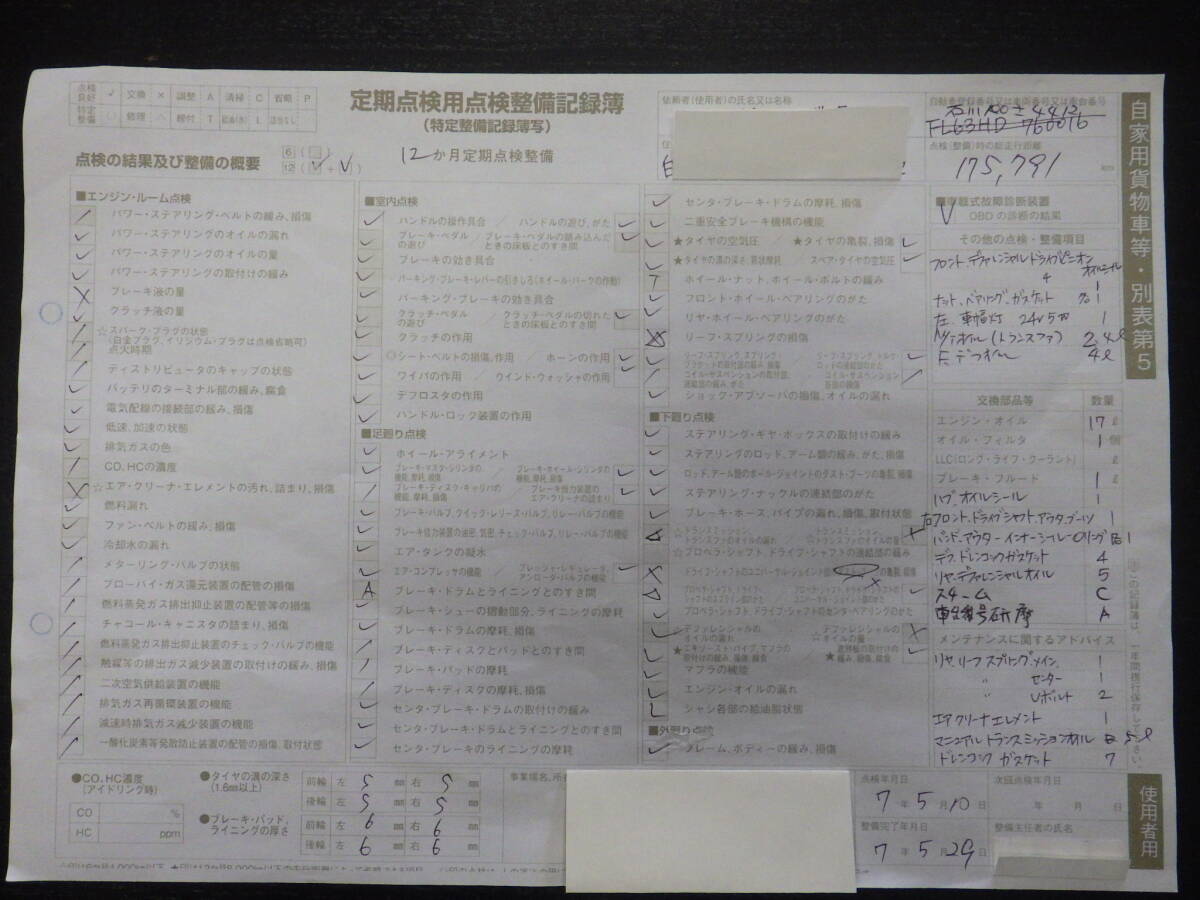 点検良好 レ 交換 × 調整 A 清掃 C 省略 P
特定整備 ○ 修理 △ 締付 T 給油(水) L 該当なし ／
定期点検用点検整備記録簿
(特定整備記録簿写)
点検の結果及び整備の概要
12か月定期点検整備
依頼者(使用者)の氏名又は名称
自動車登録番号又は車両番号又は車台番号
FL63HD 760016
点検(整備)時の総走行距離
175,791 km
自家用貨物車等・別表第5
■エンジン・ルーム点検
パワー・ステアリング・ベルトの緩み、損傷
パワー・ステアリングのオイルの漏れ
パワー・ステアリングのオイルの量
パワー・ステアリングの取付けの緩み
ブレーキ液の量
クラッチ液の量
☆スパーク・プラグの状態
(白金プラグ、イリジウム・プラグは点検省略可)
点火時期
ディストリビュータのキャップの状態
バッテリのターミナル部の緩み、腐食
電気配線の接続部の緩み、損傷
低速、加速の状態
排気ガスの色
CO、HCの濃度
☆エア・クリーナ・エレメントの汚れ、詰まり、損傷
燃料漏れ
ファン・ベルトの緩み、損傷
冷却水の漏れ
メターリング・バルブの状態
ブローバイ・ガス還元装置の配管の損傷
燃料蒸発ガス排出抑止装置の配管等の損傷
チャコール・キャニスタの詰まり、損傷
燃料蒸発ガス排出抑止装置のチェック・バルブの機能
触媒等の排出ガス減少装置の取付けの緩み、損傷
二次空気供給装置の機能
排気ガス再循環装置の機能
減速時排気ガス減少装置の機能
一酸化炭素等発散防止装置の配管の損傷、取付状態
■室内点検
ハンドルの操作具合 ／ ハンドルの遊び、がた
ブレーキ・ペダルの遊び ／ ブレーキ・ペダルの踏み込んだときの床板とのすき間
ブレーキの効き具合
パーキング・ブレーキ・レバーの引きしろ(ホイール・パークの作動)
パーキング・ブレーキの効き具合
クラッチ・ペダルの遊び ／ クラッチ・ペダルの切れたときの床板とのすき間
クラッチの作用
◎シート・ベルトの損傷、作用 ／ ホーンの作用
ワイパの作用 ／ ウインド・ウォッシャの作用
デフロスタの作用
ハンドル・ロック装置の作用
■足廻り点検
ホイール・アライメント
ブレーキ・マスタ・シリンダの機能、摩耗、損傷 ／ ブレーキ・ホイール・シリンダの機能、摩耗、損傷
ブレーキ・ディスク・キャリパの機能、摩耗、損傷 ／ ブレーキ倍力装置のエア・クリーナの詰まり
ブレーキ・バルブ、クイック・レリーズ・バルブ、リレー・バルブの機能
ブレーキ倍力装置の油密、気密、チェック・バルブ、リレー・バルブの機能
エア・タンクの凝水
エア・コンプレッサの機能 ／ プレッシャ・レギュレータ、アンローダ・バルブの機能
A ブレーキ・ドラムとライニングとのすき間
ブレーキ・シューの摺動部分、ライニングの摩耗
ブレーキ・ドラムの摩耗、損傷
ブレーキ・ディスクとパッドとのすき間
ブレーキ・パッドの摩耗
ブレーキ・ディスクの摩耗、損傷
センタ・ブレーキ・ドラムの取付けの緩み
センタ・ブレーキ・ドラムとライニングとのすき間
センタ・ブレーキのライニングの摩耗
センタ・ブレーキ・ドラムの摩耗、損傷
二重安全ブレーキ機構の機能
★タイヤの空気圧 ／ ★タイヤの亀裂、損傷
★タイヤの溝の深さ、異状摩耗 ／ スペア・タイヤの空気圧
T ホイール・ナット、ホイール・ボルトの緩み
フロント・ホイール・ベアリングのがた
リヤ・ホイール・ベアリングのがた
リーフ・スプリングの損傷
ショック・アブソーバの損傷、オイルの漏れ
■下廻り点検
ステアリング・ギヤ・ボックスの取付けの緩み
ステアリングのロッド、アーム類の緩み、がた、損傷
ロッド、アーム類のボール・ジョイントのダスト・ブーツの亀裂、損傷
ステアリング・ナックルの連結部のがた
ブレーキ・ホース、パイプの漏れ、損傷、取付状態
☆トランスミッション、トランスファのオイルの漏れ ／ ☆トランスミッション、トランスファのオイルの量
☆プロペラ・シャフト、ドライブ・シャフトの連結部の緩み
プロペラ・シャフト、ドライブ・シャフトのセンタ・ベアリングのがた
☆デファレンシャルのオイルの漏れ ／ デファレンシャルの☆オイルの量
★エキゾースト・パイプ、マフラの取付けの緩み、損傷、腐食 ／ 遮熱板の取付けの★緩み、損傷、腐食
マフラの機能
エンジン・オイルの漏れ
シャシ各部の給油脂状態
■外廻り点検
フレーム、ボディーの緩み、損傷
■車載式故障診断装置
OBDの診断の結果
その他の点検・整備項目
フロント.デファレンシャルドライブピニオン
オイルシール
ナット.ベアリング.ガスケット 各1
左.車幅灯 24V5W 1
M/Tオイル(トランスファ) 2.4ℓ
F.デフオイル 4ℓ
交換部品等 数量
エンジン・オイル 17 ℓ
オイル・フィルタ 1 個
LLC(ロング・ライフ・クーラント) ℓ
ブレーキ・フルード 1 ℓ
ハブ.オイルシール 1
右フロント.ドライブシャフト.アウタブーツ 1
バンド.アウターインナーシール.Oリング 各1
デフ.ドレンコックガスケット 4
リヤ.デファレンシャルオイル 5
スチーム C
メンテナンスに関するアドバイス
リヤ.リーフスプリング.メイン. 1
〃 センター 1
〃 Uボルト 2
エアクリーナエレメント 1
マニュアルトランスミッションオイル 5ℓ
ドレンコックガスケット 7
この記録簿は、一年間携行保存して下さい。
使用者用
●CO、HC濃度
(アイドリング時)
CO %
HC ppm
●タイヤの溝の深さ
(1.6mm以上)
前輪 左 5 mm 右 5
後輪 左 5 mm 右 5
●ブレーキ・パッド、ライニングの厚さ
前輪 左 6 mm 右 6
後輪 左 6 mm 右 6
点検年月日
7年5月10日
次回点検年月日
年 月 日
整備完了年月日
7年5月29
整備主任者の氏名